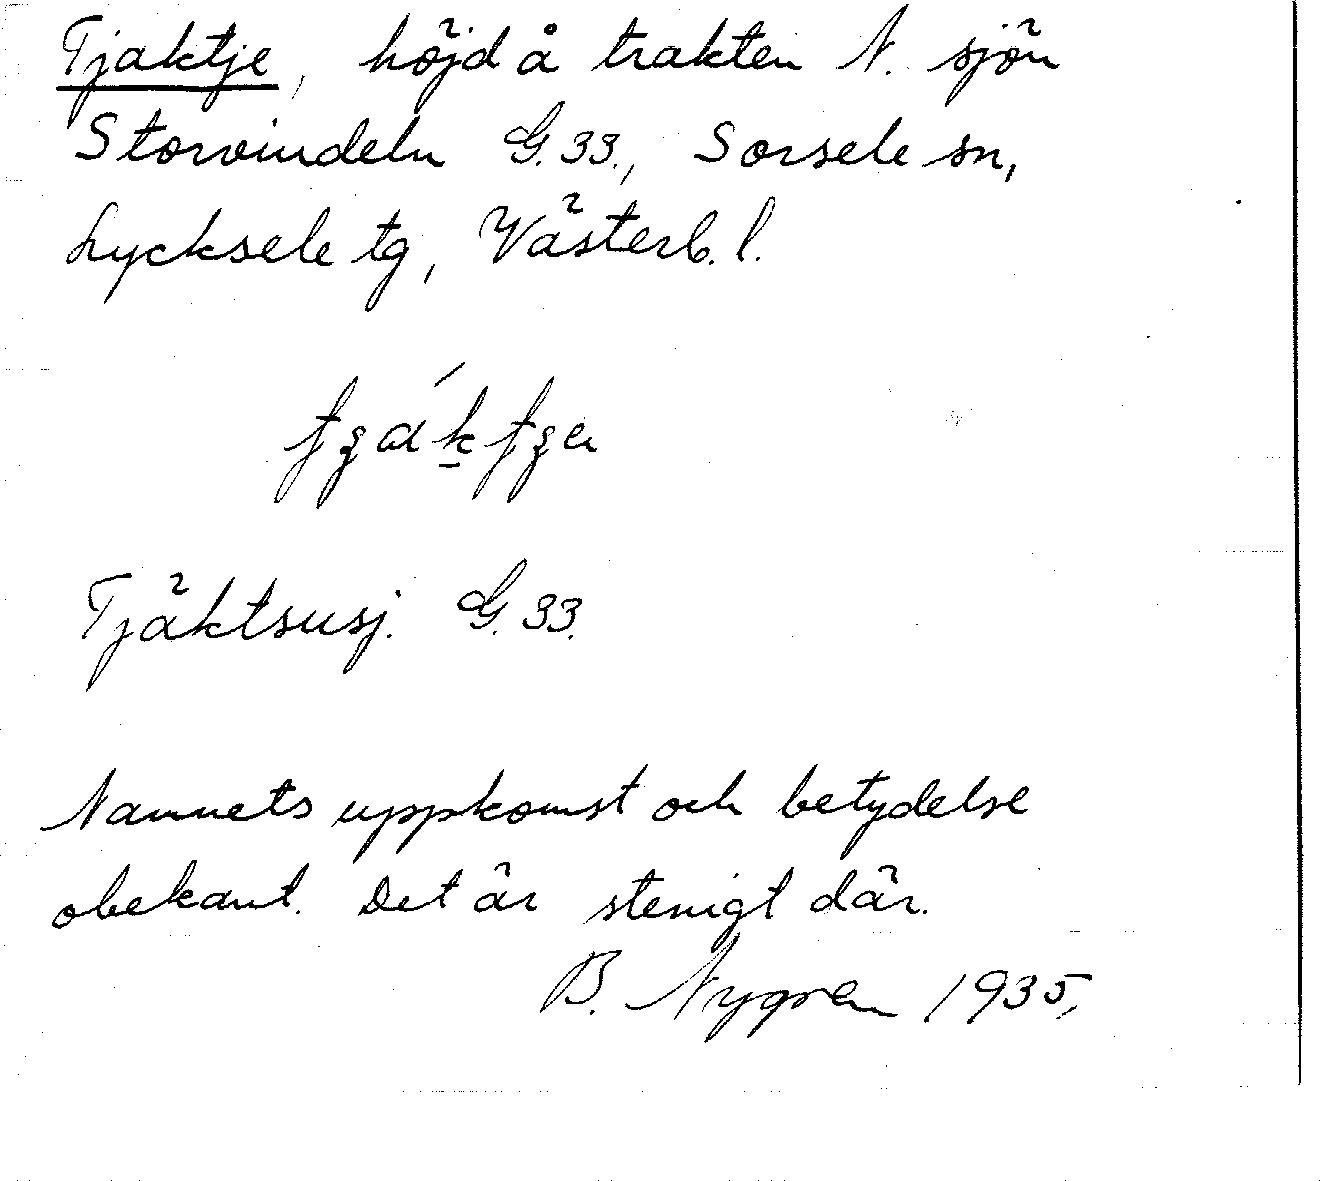 Tjaktje, höjd å trakten N. sjön
Storvindeln G.33., Sorsele sn,
Lycksele tg, Västerb. l.
Tjäktsusj. G. 33.
Namnets uppkomst och betydelse
obekant. Det är stenigt där.
B. Nygren 1935,